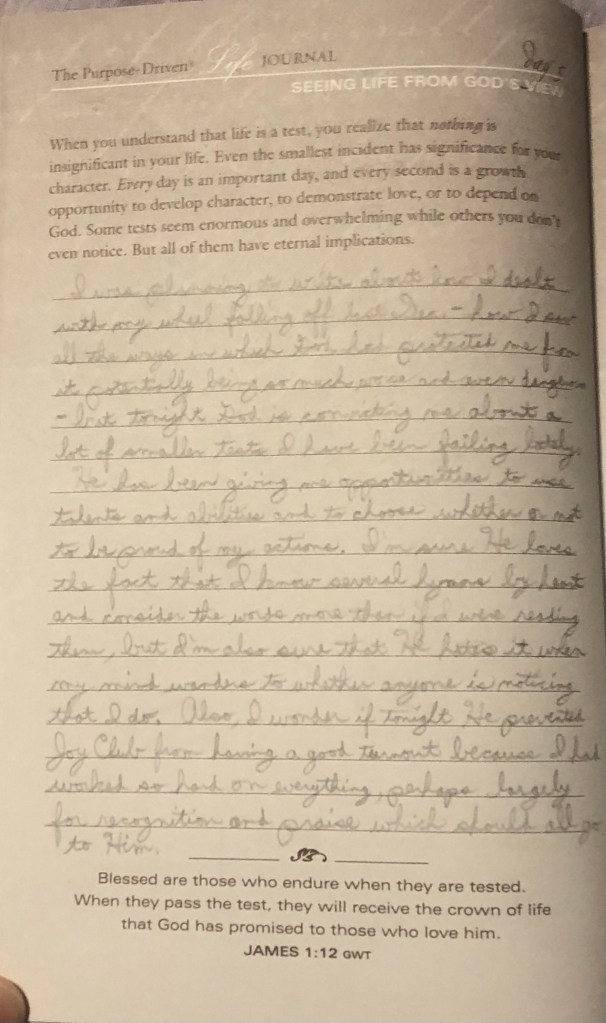 The Purpose-Driven® Life JOURNAL
Day 5
SEEING LIFE FROM GOD'S VIEW
When you understand that life is a test, you realize that nothing is
insignificant in your life. Even the smallest incident has significance for your
character. Every day is an important day, and every second is a growth
opportunity to develop character, to demonstrate love, or to depend on
God. Some tests seem enormous and overwhelming while others you don't
even notice. But all of them have eternal implications.
I was planning to write about how I dealt
with my wheel falling off last - how I saw
all the ways in which God had protected me from
it potentially being so much worse and even dangerous
- but tonight God is convicting me about a
lot of smaller tests I have been failing lately.
He has been giving me opportunities to use
talents and abilities and to choose whether or not
to be proud of my actions. I'm sure He loves
the fact that I know several hymns by heart
and consider the words more than if I were reading
them, but I'm also sure that He hates it when
my mind wanders to whether anyone is noticing
that I do. Also, I wonder if tonight He prevented
Joy Club from having a good turnout because I had
worked so hard on everything, perhaps largely
for recognition and praise which should all go
to Him.
Blessed are those who endure when they are tested.
When they pass the test, they will receive the crown of life
that God has promised to those who love him.
JAMES 1:12 GWT